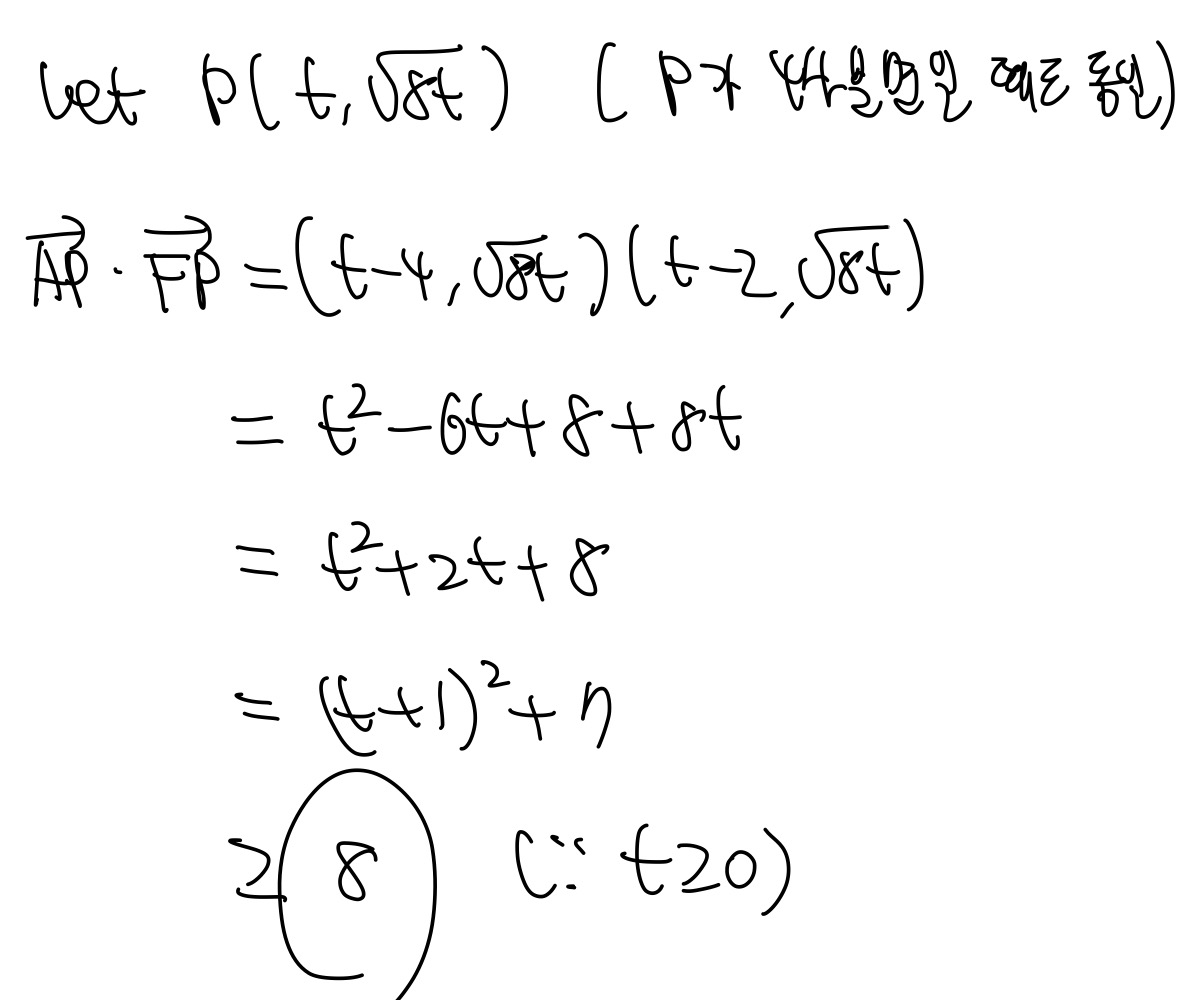 let P(t, √8t) (P가 4사분면일 때도 동일)
AP⃗ · FP⃗ = (t-4, √8t)(t-2, √8t)
= t² - 6t + 8 + 8t
= t² + 2t + 8
= (t+1)² + 7
≥ 8 (∵ t≥0)